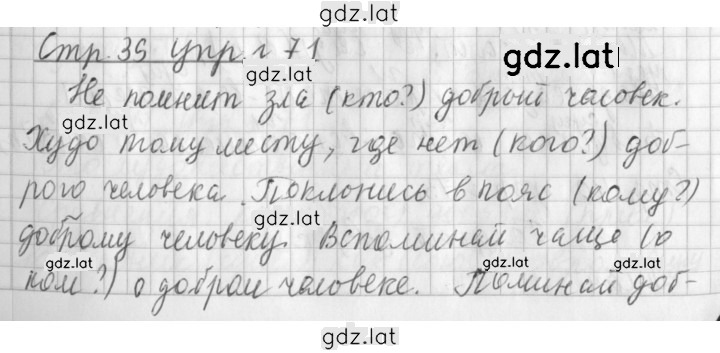 gdz.lat
Стр 39 упр. 71
gdz.lat
gdz.lat
Не помнит зла (кто?) добрый человек.
gdz.lat
Худо тому месту, где нет (кого?) доб-
рого человека. Поклонись в пояс (кому?)
gdz.lat
доброму человеку. Вспоминай чаще (о
gdz.lat gdz.lat gdz.lat
ком?) о добром человеке. Поминай доб-
gdz.lat